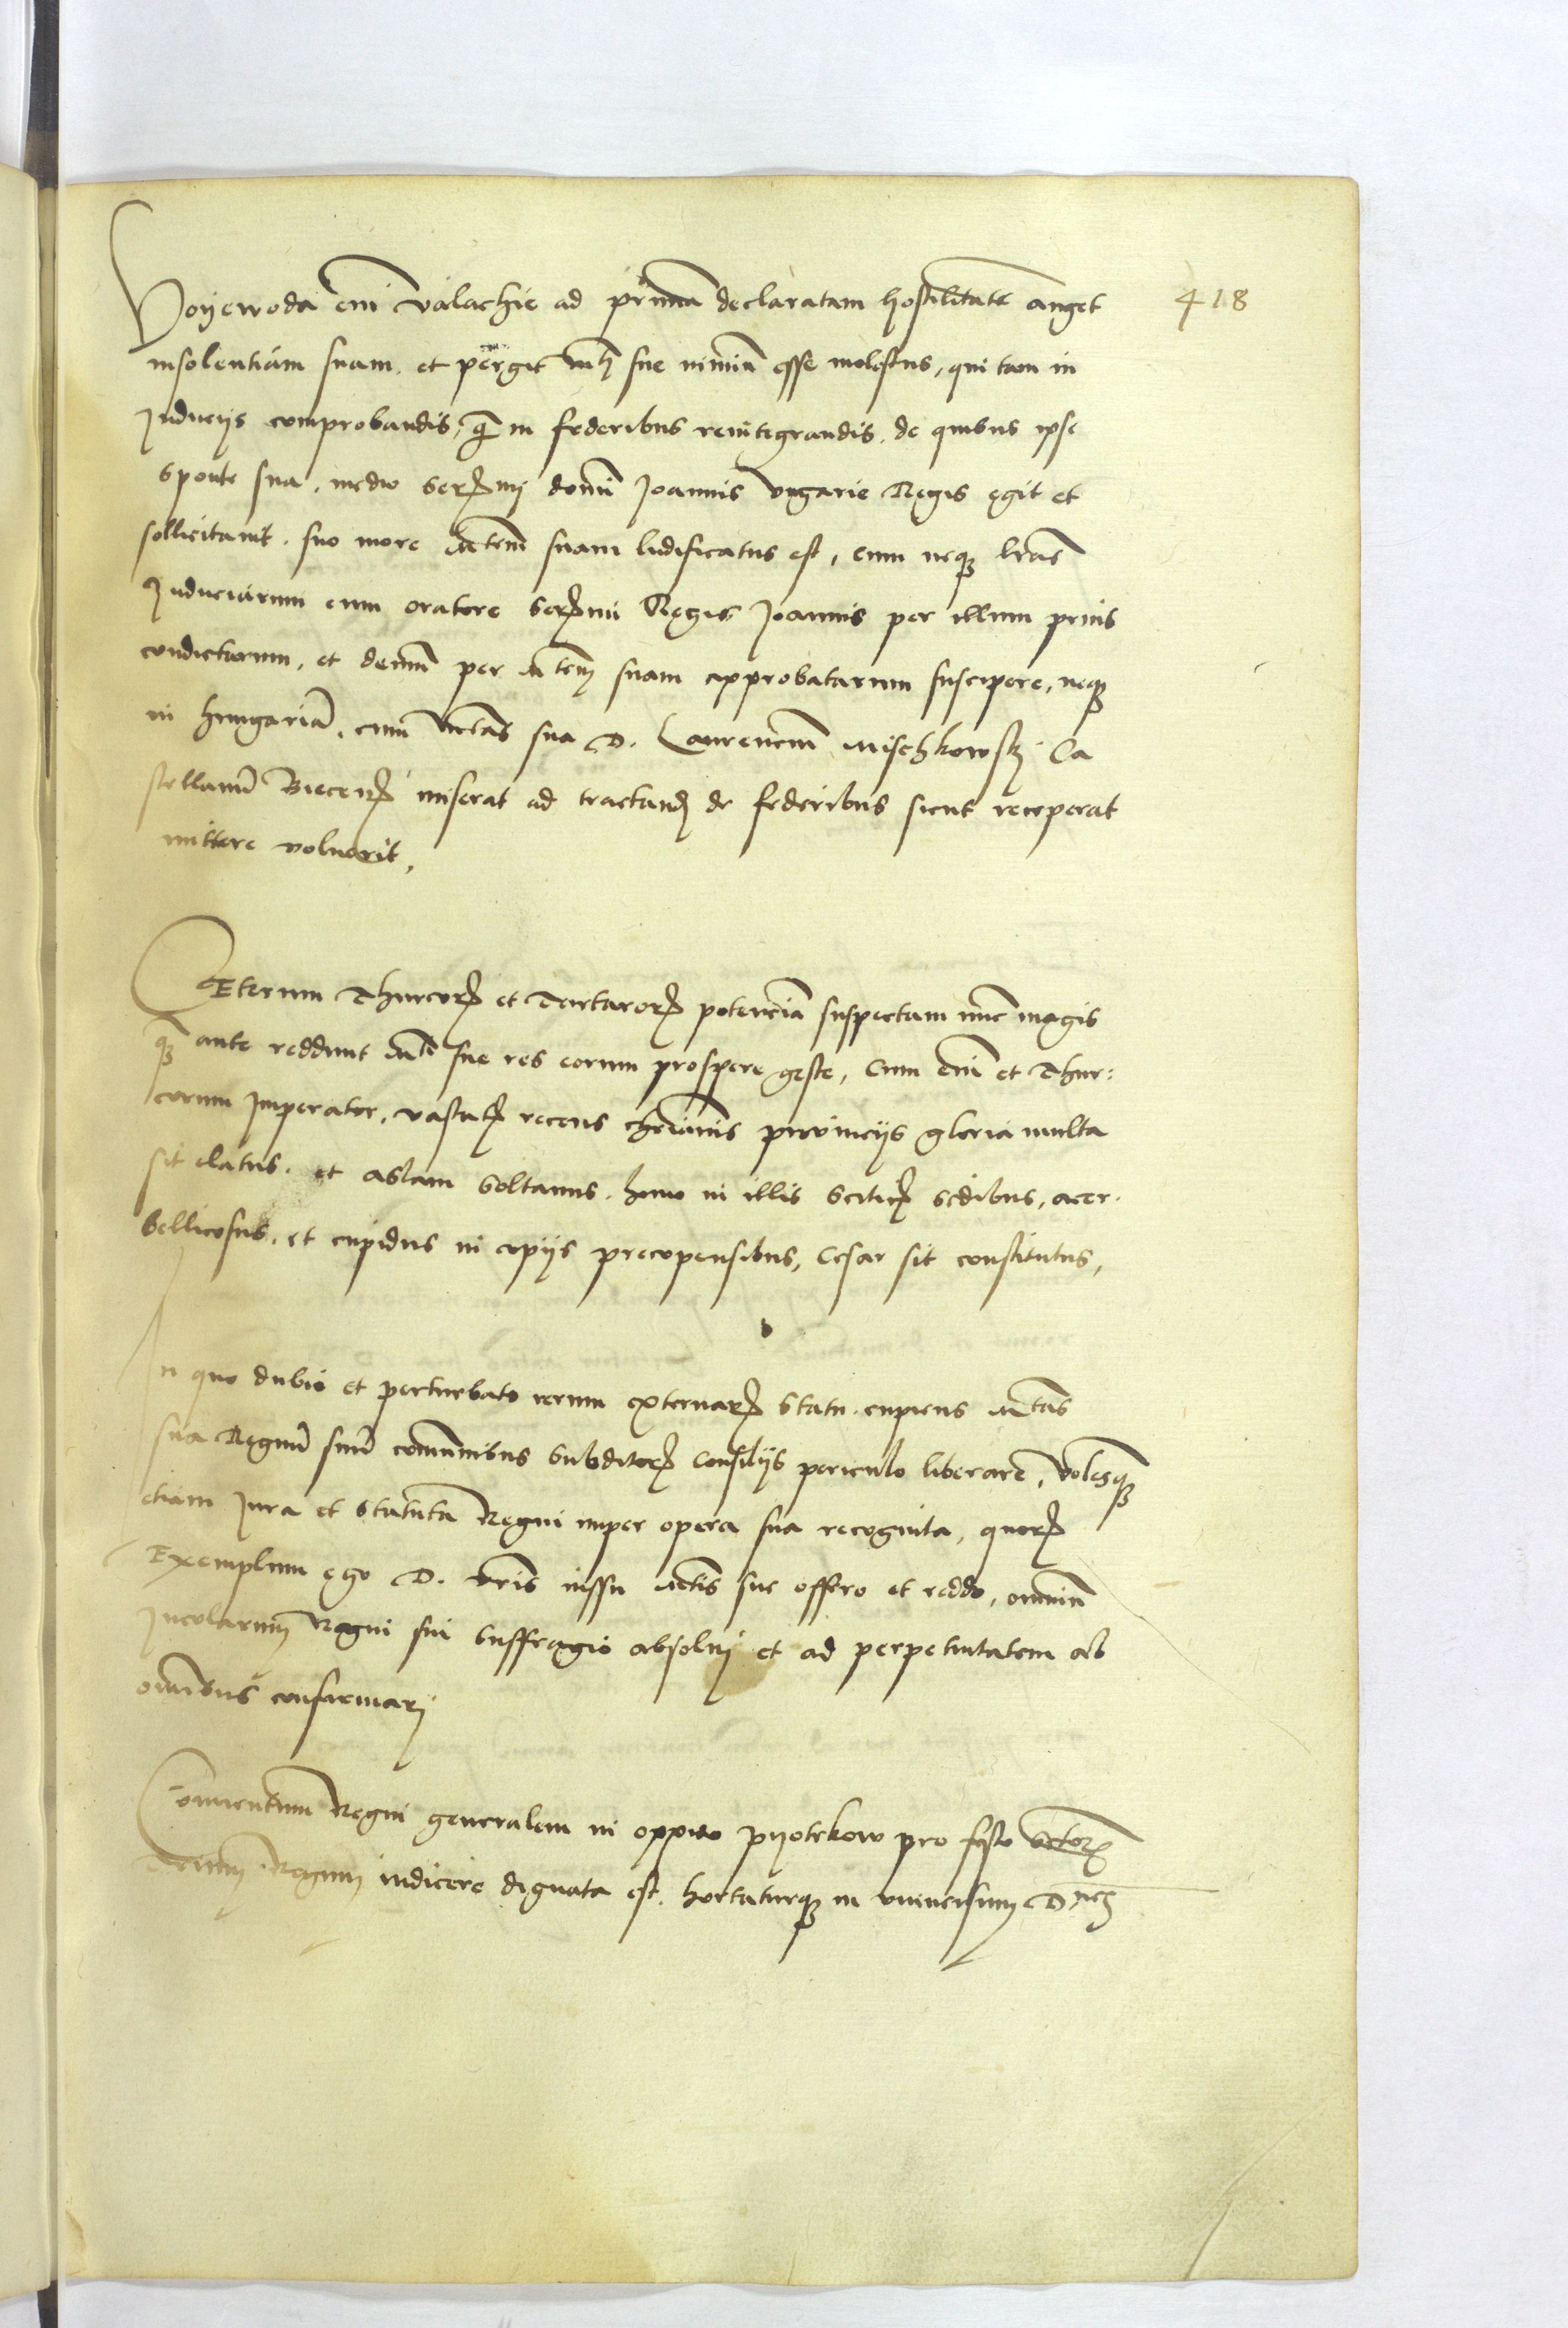 418
Voyewoda eni Valachie ad primã declaratam hostilitatẽ auget
insolentiam suam, et pergit mti sue nimiũ esse molestus, qui tam in
Induciis comprobandis, q̃ in federibus reintegrandis, de quibus ipse
sponte sua, medio Serꝫmi domini Joannis Ungarie Regis egit et
sollicitavit. suo more Mtem suam ludificatus est, cum neqꝫ lras
Induciarum cum oratore Serꝫmi Regis Joannis per illum prius
condictarum, et demũ per Mtem suam approbatarum suscipere, neqꝫ
in Hungariã, cum Mtas sua D. Laurencium Mischkowskj Ca
stellanũ Biecenꝫ miserat ad tractandꝫ de federibus sicut receperat
mittere voluerit,
CEterum Thurcorꝫ et Tartarorꝫ potenciã suspectam nũc magis
qꝫ ante reddunt Mti sue res eorum prospere geste, Cum eni et Thur:
corum Imperator, vastatꝫ recens chrianis provinciis gloria multa
sit elatus. et aslam Soltanus. homo in illis Sciticꝫ sedibus, acer.
bellicosus, et cupidus in copiis precopensibus, Cesar sit constitutus,
In quo dubio et perturbato rerum externarꝫ statu. cupiens Mtas
sua Regnũ suũ comunibus subditorꝫ Consiliis periculo liberare, volesqꝫ
etiam Jura et statuta Regni nuper opera sua recognita, quorꝫ
Exemplum ego D. vris iussu Mtis sue offero et reddo, omniũ
Incolarum Regni sui suffragio absolvi et ad perpetuitatem ab
omibus confirmari
Conventum Regni generalem in oppido pyotrkow pro festo
Trium Regum indicere dignata est. hortaturqꝫ in universum D